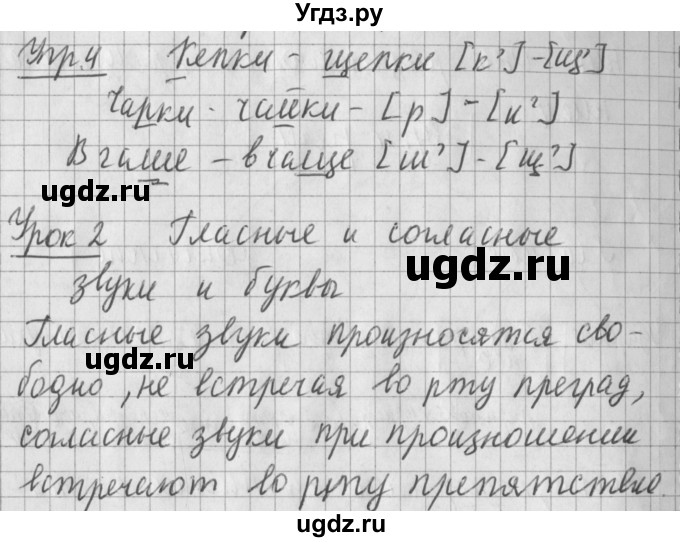 Угдз.ру
Упр.4 Кепки - щепки [к']-[щ']
Чарки - чайки - [р]-[й']
В гаше - в чаще [ш']-[щ']
ugdz.ru
Урок 2 Гласные и согласные
ugdz.ru
звуки и буквы
Гласные звуки произносятся сво-
ugdz.ru
бодно, не встречая во рту преград,
согласные звуки при произношении
встречают во рту препятствие.
ugdz.ru